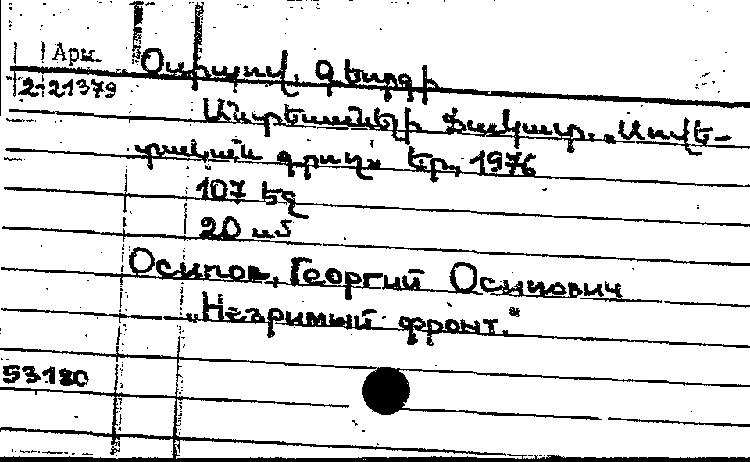 Арм.
2-21379
Օսիպով, Գեորգի
Անտեսանելի ճակատ. „Սովե-
տական գրող» Եր., 1976
107 էջ
20 սմ
Осипов, Георгий Осипович
„Незримый фронт.“
53180